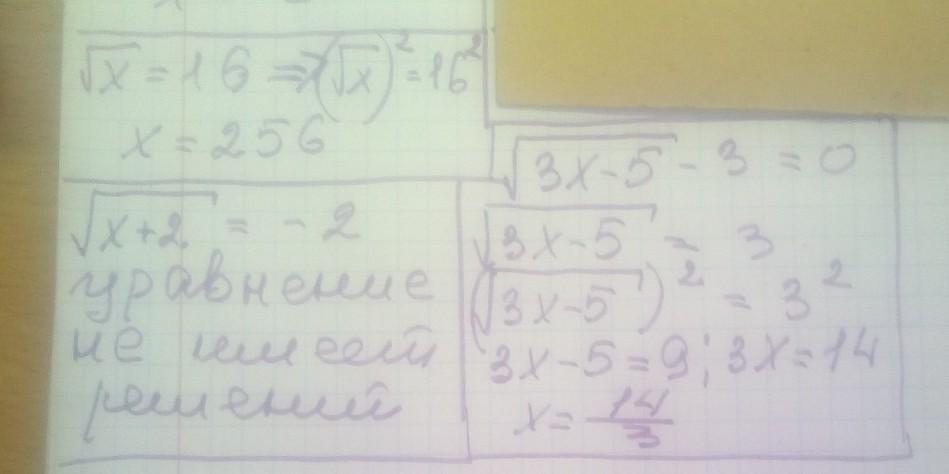 √x = 16 => (√x)² = 16²
x = 256
√x+2 = - 2
уравнение
не имеет
решений
√3x-5 - 3 = 0
√3x-5 = 3
(√3x-5)² = 3²
3x-5=9; 3x=14
x= 14/3